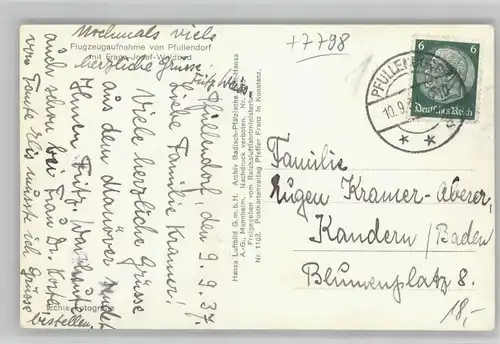 Nochmals viele
herzliche Grüsse!
Fritz Weiss.
Flugzeugaufnahme von Pfullendorf
mit Franz-Josef-Waldbad
Pfullendorf, den 9. 9. 37.
Liebe Familie Kramer!
Viele herzliche Grüsse
aus dem Manöver sendet
Ihnen Fritz. War heute
auch schon bei Frau Dr. 
von Taute Elis musste ich Grüsse
bestellen.
Echte Fotografie
Hansa Luftbild G.m.b.H. Archiv Badisch-Pfälzische Luft-Hansa
A.-G., Mannheim. Nachdruck verboten.
Freigegeben vom Reichsluftfahrtministerium
Nr. 1102. Postkartenverlag Pfeffer Franz in Konstanz.
+7798
6 6
Deutsches Reich
PFULLENDORF
10.9.
Familie
Eugen Kramer-Aberer,
Kandern/Baden
Blumenplatz 8.
18,-